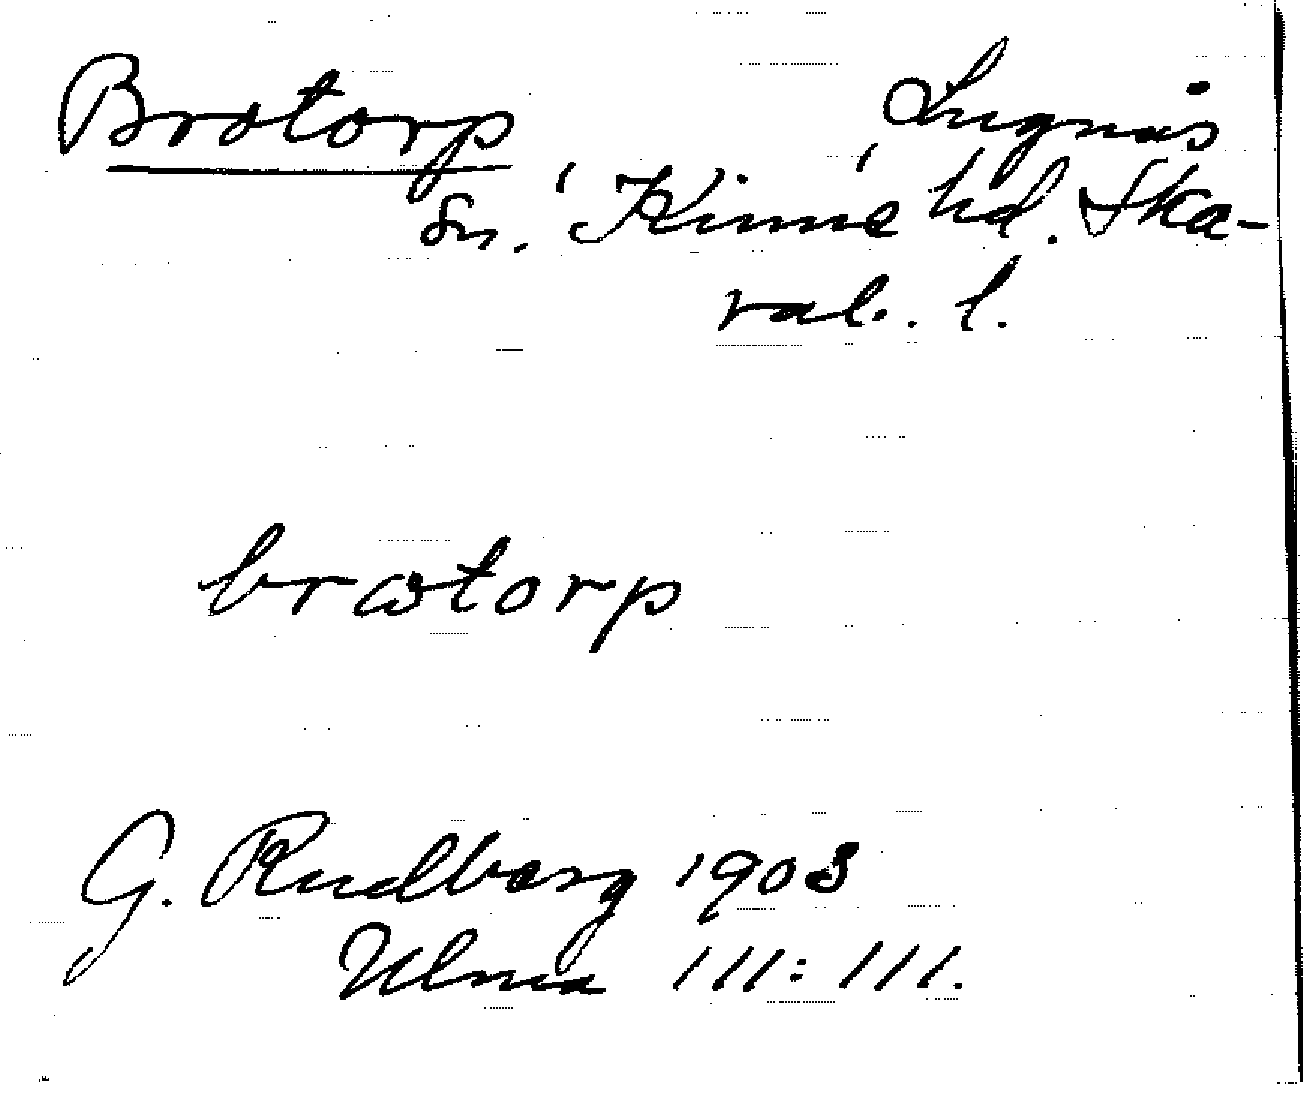 Brotorp Lugnås
sn. Kinne hd. Ska-
rab. l.
brωtorp
G. Rudberg 1903
Ulma 111:111.